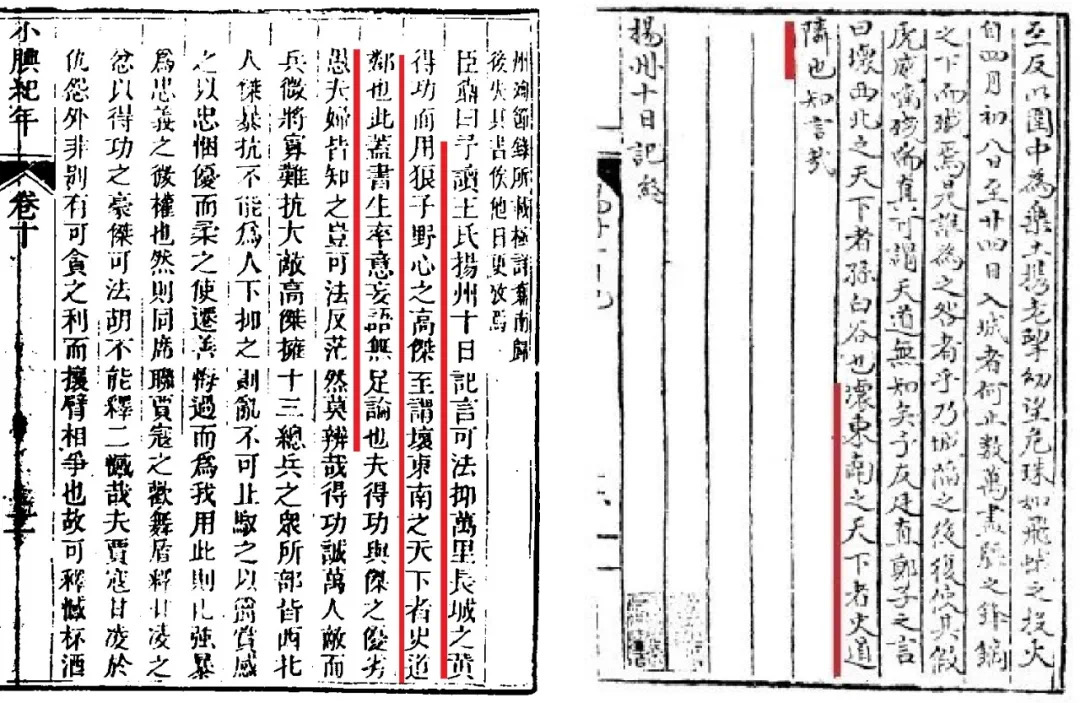 小腆紀年 卷十
州殉節錄所載極詳棄南歸
後失其書俟他日更攷焉
臣鼒曰予讀王氏揚州十日記言可法抑萬里長城之黃
得功而用狼子野心之高傑至謂壞東南之天下者史道
鄰也此蓋書生率意妄語無足論也夫得功與傑之優劣
愚夫婦皆知之豈可法反茫然莫辨哉得功誠萬人敵而
兵微將寡難抗大敵高傑擁十三總兵之眾所部皆西北
人傑暴抗不能為人下抑之則亂不可止馭之以爵賞感
之以忠悃優而柔之使遷善悔過而為我用此則化強暴
為忠義之微權也然則同席聯賈寇之歡舞盾釋甘凌之
忿以得功之豪傑可法胡不能釋二憾哉夫賈寇甘凌於
仇怨外非別有可貪之利而攘臂相爭也故可釋憾杯酒
至反以圍中為樂土揚老挈幼望危珠如飛蛾之投火
自四月初八日至廿四日入城者何止數萬盡駢之鋒鏑
之下而職焉是誰為之咎者乎乃城陷之後復使其假
虎威噬殘喘真可謂天道無知矣予友是真鄭子之言
曰壞西北之天下者孫白谷也壞東南之天下者史道
隣也知言哉
揚州十日記終